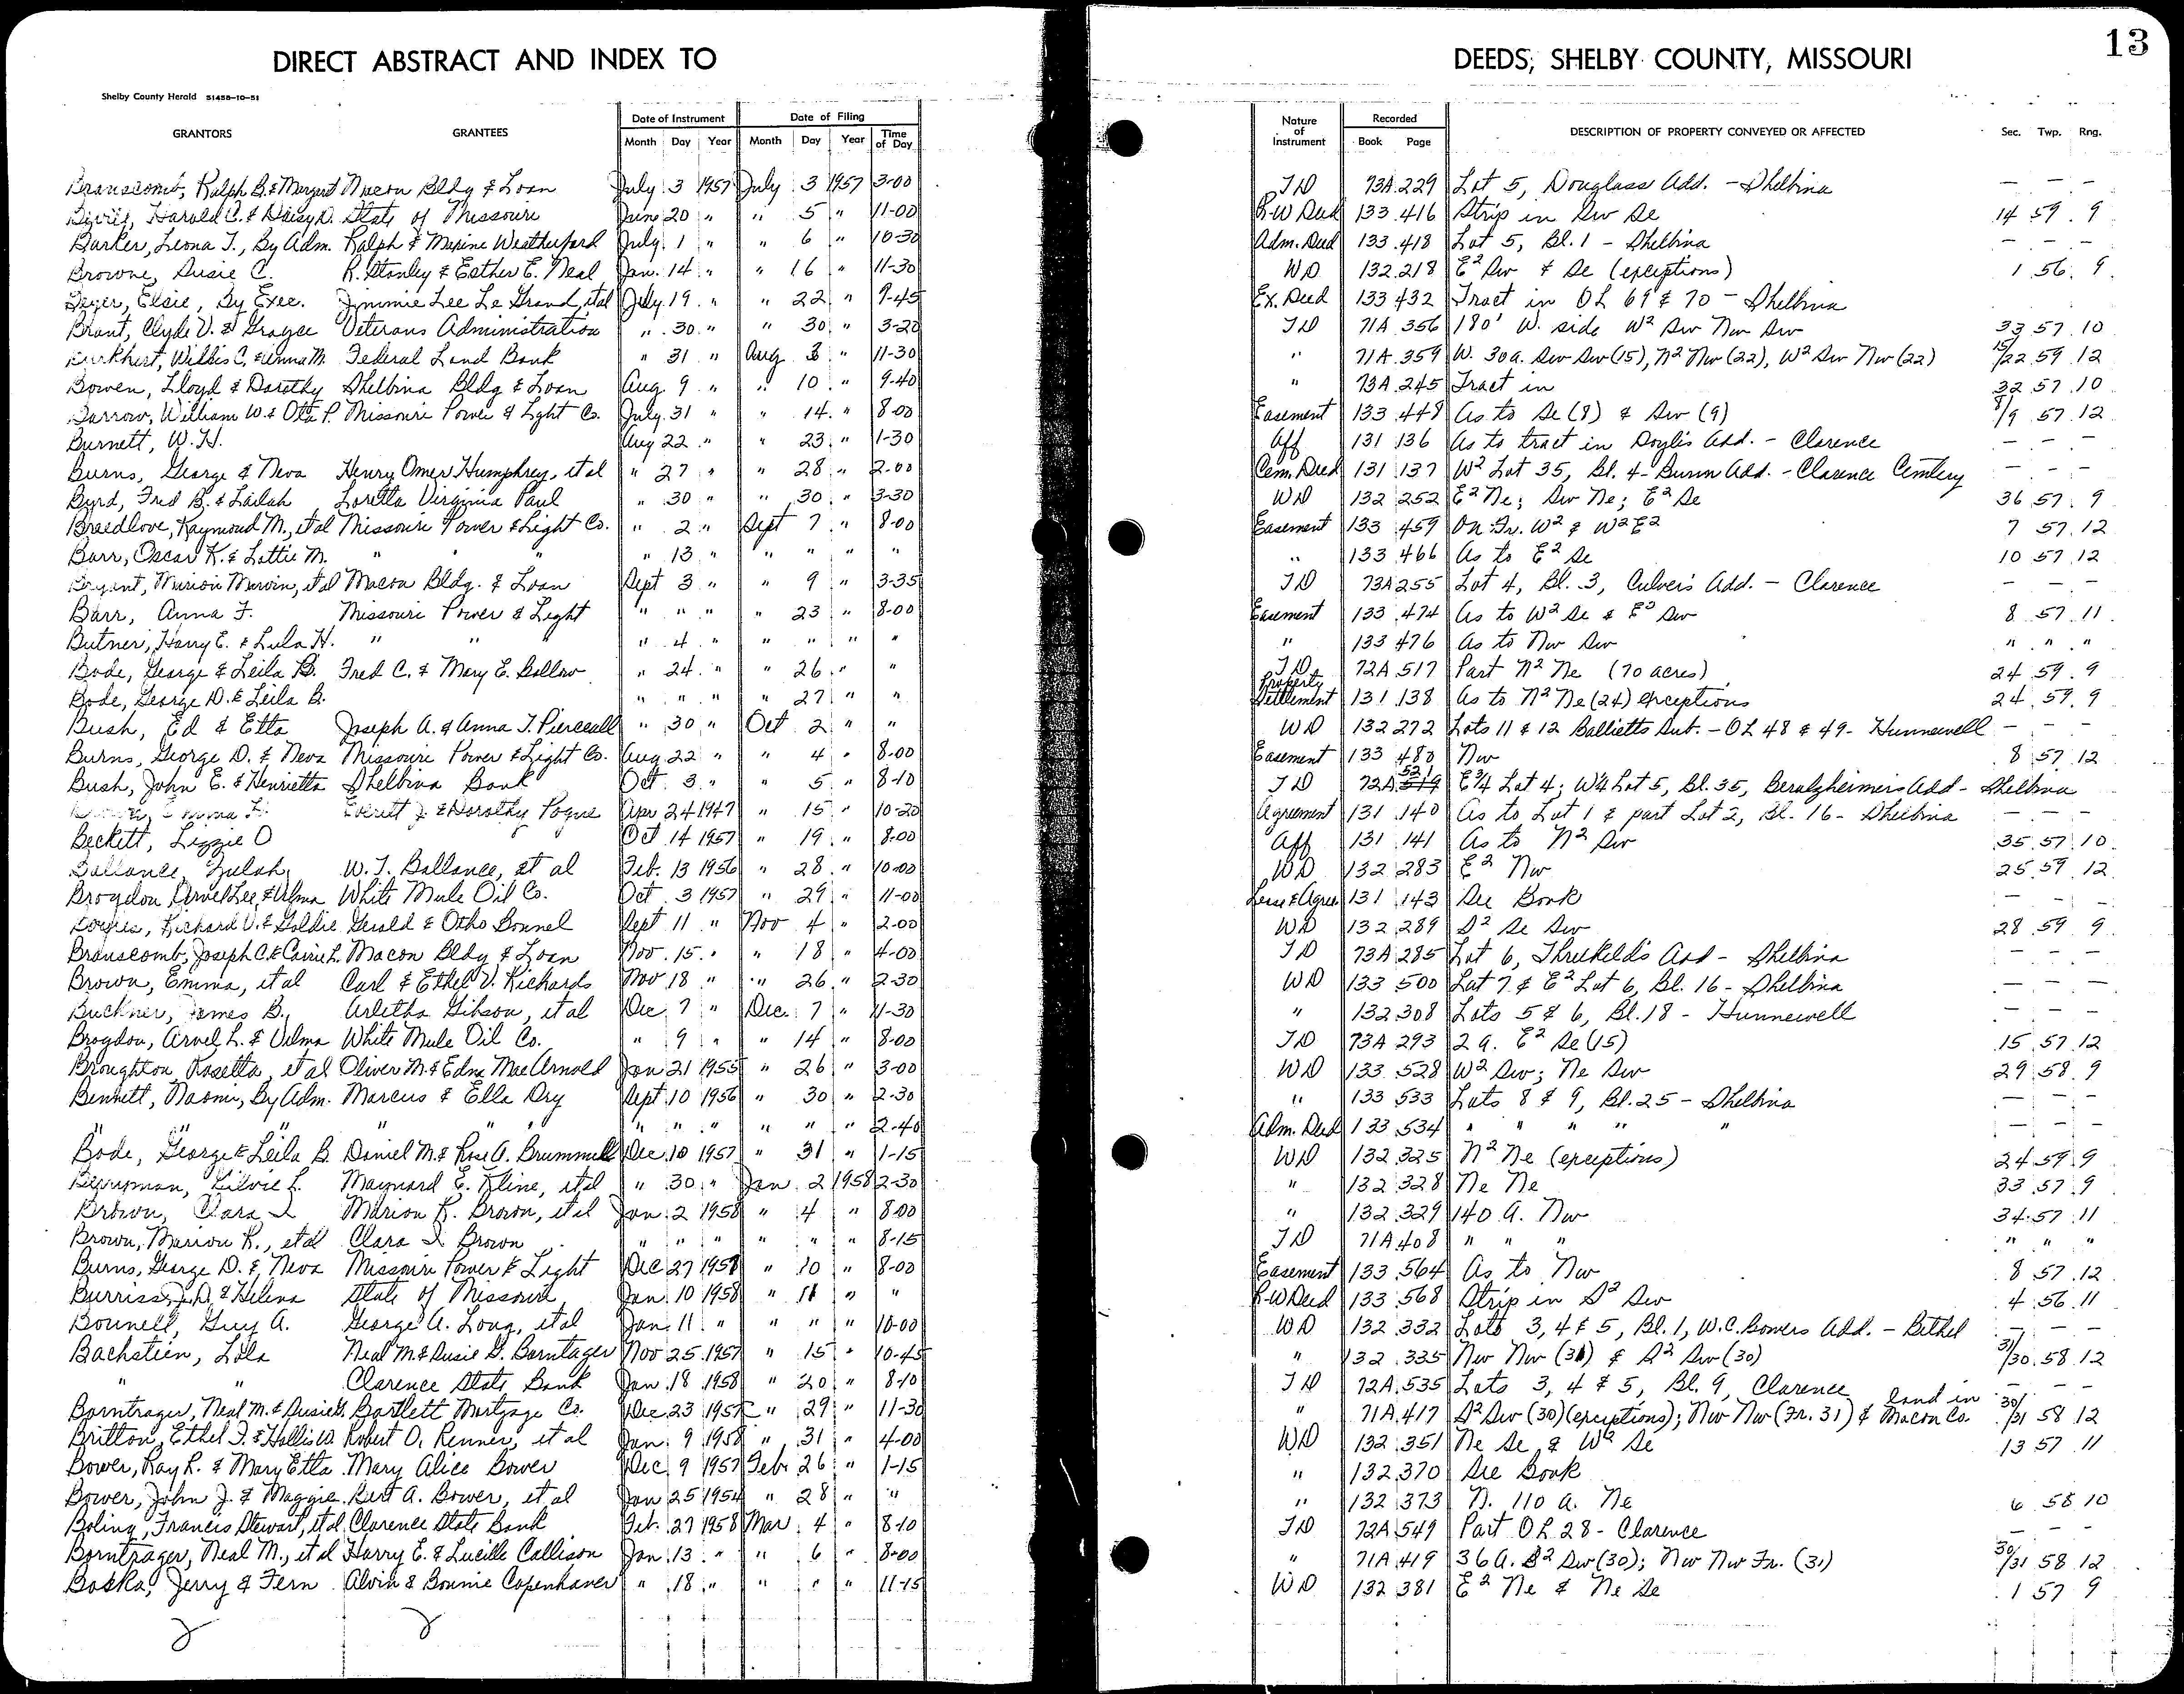 DIRECT ABSTRACT AND INDEX TO DEEDS, SHELBY COUNTY, MISSOURI 13
Shelby County Herald 51458-10-51
GRANTORS GRANTEES Date of Instrument Month Day Year Date of Filing Month Day Year Time of Day Nature of Instrument Recorded Book Page DESCRIPTION OF PROPERTY CONVEYED OR AFFECTED Sec. Twp. Rng.
Branscomb, Ralph B. & Margaret Macon Bldg & Loan July 3 1957 July 3 1957 3-00 TD 73A 229 Lot 5, Douglass Add. - Shelbina — — —
Harold C. & Daisy D. State of Missouri June 20 " " 5 " 11-00 R-W Deed 133 416 Strip in Sw Se 14 59 9
Barker, Leona T., By Adm. Ralph & Maxine Weatherford July 1 " " 6 " 10-30 Adm. Deed 133 418 Lot 5, Bl. 1 - Shelbina — — —
Browne, Susie C. R. Stanley & Esther E. Neal Jan. 14 " " 16 " 11-30 WD 132 218 E² Sw & Se (exceptions) 1 56 9
Elsie, By Exec. Jimmie Lee Le Grand, et al July 19 " " 22 " 9-45 Ex. Deed 133 432 Tract in OL 69 & 70 - Shelbina
Brant, Clyde V. & Grayce Veterans Administration " 30 " " 30 " 3-20 TD 71A 356 180' W. side W² Sw Nw Sw 33 57 10
Burkhart, Willis C. & Anna M. Federal Land Bank " 31 " Aug 3 " 11-30 " 71A 359 W. 30a. Sw Sw (15), N² Nw (22), W² Sw Nw (22) 15/22 59 12
Bowen, Lloyd & Dorothy Shelbina Bldg & Loan Aug. 9 " " 10 " 9-40 " 73A 245 Tract in 32 57 10
Barrow, William W. & Ota P. Missouri Power & Light Co. July 31 " " 14 " 8-00 Easement 133 448 As to Se (8) & Sw (9) 8/9 57 12
Burnett, W. H. Aug 22 " " 23 " 1-30 Aff 131 136 As to tract in Doyle's Add. - Clarence — — —
Burns, George & Neva Henry Omer Humphrey, et al " 27 " " 28 " 2-00 Cem. Deed 131 137 W² Lot 35, Bl. 4 - Add. - Clarence Cemtery — — —
Byrd, Fred B. & Lailah Loretta Virginia Paul " 30 " " 30 " 3-30 WD 132 252 E² Ne; Sw Ne; E² Se 36 57 9
Breedlove, Raymond M., et al Missouri Power & Light Co. " 2 " Sept 7 " 8-00 Easement 133 459 On Fr. W² & W² E² 7 57 12
Barr, Oscar K. & Lottie M. " " " " 13 " " " " " " 133 466 As to E² Se 10 57 12
Bryant, Marion Marvin, et al Macon Bldg. & Loan Sept 3 " " 9 " 3-35 TD 73A 255 Lot 4, Bl. 3, Culver's Add. - Clarence — — —
Barr, Anna F. Missouri Power & Light " " " " 23 " 8-00 Easement 133 474 As to W² Se & E² Sw 8 57 11
Butner, Harry E. & Lula H. " " " 4 " " " " " " 133 476 As to Nw Sw " " "
Bode, George & Leila B. Fred C. & Mary E. Bollow " 24 " " 26 " " TD 72A 517 Part N² Ne (70 acres) 24 59 9
Bode, George D. & Leila B. " " " " 27 " " Property Settlement 131 138 As to N² Ne (24) exceptions 24 59 9
Bush, Ed & Etta Joseph A. & Anna T. Pierceall " 30 " Oct 2 " " WD 132 272 Lots 11 & 12 Ballietts Sub. - OL 48 & 49 - Hunnewell — — —
Burns, George D. & Neva Missouri Power & Light Co. Aug 22 " " 4 " 8-00 Easement 133 480 Nw 8 57 12
Bush, John E. & Henrietta Shelbina Bank Oct. 3 " " 5 " 8-10 TD 72A 521 519 E¾ Lot 4; W¼ Lot 5, Bl. 35, Benalzheimers Add - Shelbina
Everett J. & Dorothy Pogue Apr 24 1947 " 15 " 10-20 Agreement 131 140 As to Lot 1 & part Lot 2, Bl. 16 - Shelbina — — —
Beckett, Lizzie O Oct 14 1957 " 19 " 8-00 Aff 131 141 As to N² Sw 35 57 10
Ballance, Zulah W. T. Ballance, et al Feb. 13 1956 " 28 " 10-00 WD 132 283 E² Nw 25 59 12
Brogdon & Velma White Mule Oil Co. Oct 3 1957 " 29 " 11-00 Lease & Agree 131 143 See Book — — —
Richard V. & Goldie Gerald & Otho Bonnel Sept 11 " Nov 4 " 2-00 WD 132 289 S² Se Sw 28 59 9
Branscomb, Joseph C. & Carrie L. Macon Bldg & Loan Nov. 15 " " 18 " 4-00 TD 73A 285 Lot 6, Threlkeld's Add - Shelbina — — —
Brown, Emma, et al Carl & Ethel V. Richards Nov 18 " " 26 " 2-30 WD 133 500 Lot 7 & E² Lot 6, Bl. 16 - Shelbina — — —
Buckner, James B. Arletha Gibson, et al Dec 7 " Dec. 7 " 11-30 " 132 308 Lots 5 & 6, Bl. 18 - Hunnewell — — —
Brogdon, Arvel L. & Velma White Mule Oil Co. " 9 " " 14 " 8-00 TD 73A 293 2 a. E² Se (15) 15 57 12
Broughton, Rosetta, et al Oliver M. & Edna Mae Arnold Jan 21 1955 " 26 " 3-00 WD 133 528 W² Sw; Ne Sw 29 58 9
Bennett, Naomi, By Adm. Marcus & Ella Dry Sept 10 1956 " 30 " 2-30 " 133 533 Lots 8 & 9, Bl. 25 - Shelbina — — —
" " " " " " " " " " " " 2-40 Adm. Deed 133 534 " " " " " — — —
Bode, George & Leila B. Daniel M. & Rose A. Brummell Dec. 10 1957 " 31 " 1-15 WD 132 325 N² Ne (exceptions) 24 59 9
Berryman, L. Maynard E. Kline, et al " 30 " Jan 2 1958 2-30 " 132 328 Ne Ne 33 57 9
Brown, Clara I Marion K. Brown, et al Jan. 2 1958 " 4 " 8-00 " 132 329 140 A. Nw 34 57 11
Brown, Marion K., et al Clara I. Brown " " " " " " 8-15 TD 71A 408 " " " " " "
Burns, George D. & Neva Missouri Power & Light Dec 27 1957 " 10 " 8-00 Easement 133 564 As to Nw 8 57 12
Burriss, J. D. & Helena State of Missouri Jan. 10 1958 " 11 " " R-W Deed 133 568 Strip in S² Sw 4 56 11
Bonnell, Guy A. George A. Long, et al Jan. 11 " " " " 10-00 WD 132 332 Lots 3, 4 & 5, Bl. 1, W.C. Bowers Add. - Bethel — — —
Bachstein, Lola Neal M. & Susie D. Borntager Nov 25 1957 " 15 " 10-45 " 132 335 Nw Nw (31) & S² Sw (30) 31/30 58 12
" " Clarence State Bank Jan. 18 1958 " 20 " 8-10 TD 72A 535 Lots 3, 4 & 5, Bl. 9, Clarence — — —
Borntrager, Neal M. & Susie D. Bartlett Mortgage Co. Dec 23 1957 " 29 " 11-30 " 71A 417 S² Sw (30) (exceptions); Nw Nw (Fr. 31) & land in Macon Co. 30/31 58 12
Britton, Ethel F. & Hollis W. Robert O. Renner, et al Jan. 9 1958 " 31 " 4-00 WD 132 351 Ne Se & W² Se 13 57 11
Bower, Ray R. & Mary Etta Mary Alice Bower Dec 9 1957 Feb. 26 " 1-15 " 132 370 See Book
Bower, John J. & Maggie Burt A. Bower, et al Jan 25 1954 " 28 " " " 132 373 N. 110 a. Ne 6 58 10
Boling, Francis Stewart, et al Clarence State Bank Feb. 27 1958 Mar 4 " 8-10 TD 72A 549 Part OL 28 - Clarence — — —
Borntrager, Neal M., et al Harry E. & Lucille Callison Jan. 13 " " 6 " 8-00 " 71A 419 36 A. S² Sw (30); Nw Nw Fr. (31) 30/31 58 12
Boska, Jerry & Fern Alvin & Bonnie Copenhaver " 18 " " " " 11-15 WD 132 381 E² Ne & Ne Se 1 57 9